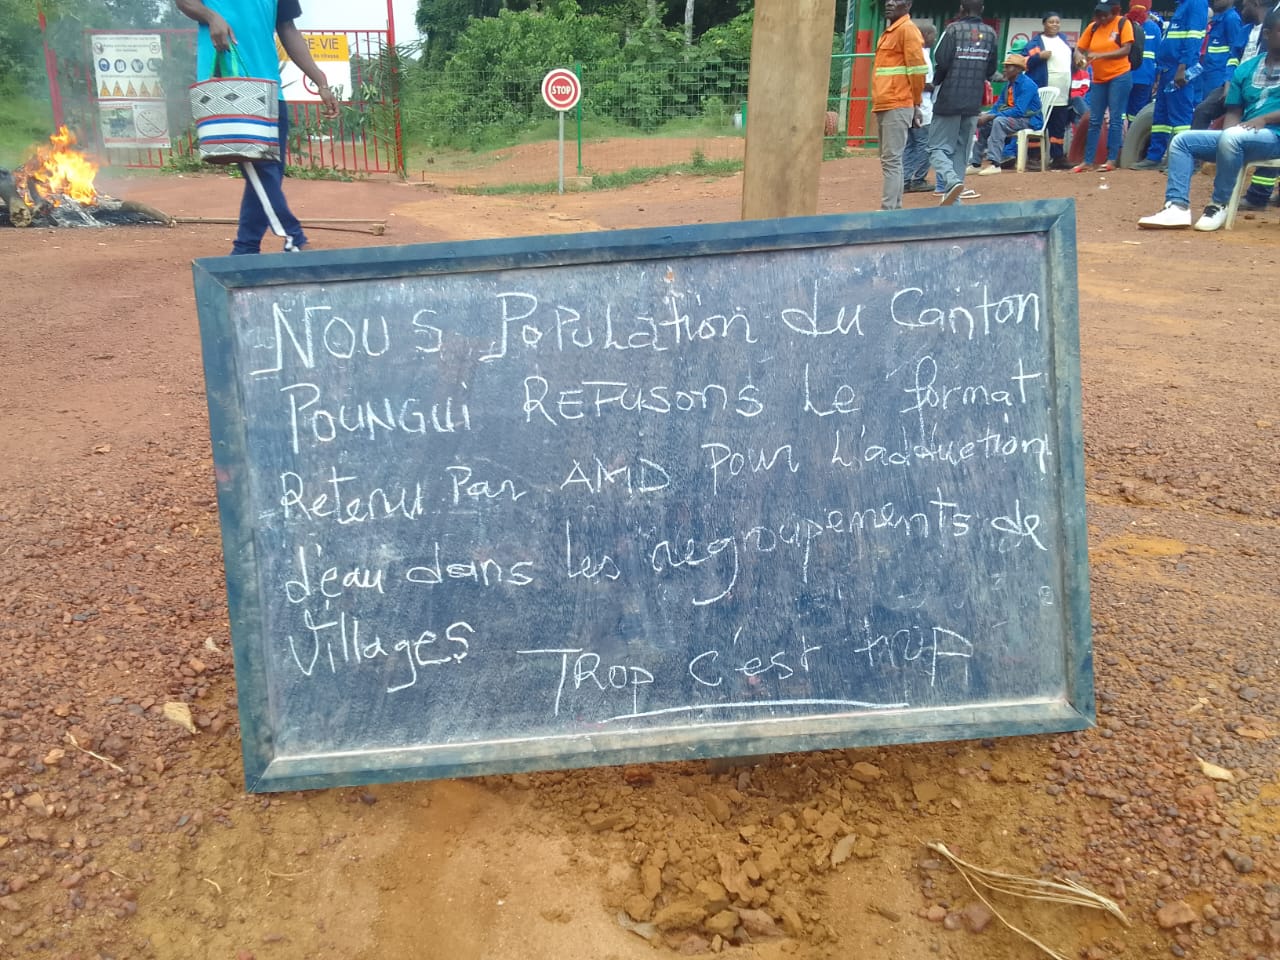 E-VIE
STOP
NOUS POPULATION du Canton
POUNGUi REFUSONS Le format
Retenu Par AMD Pour L'adduction
d'eau dans les regroupements de
Villages
TROP C'est trop